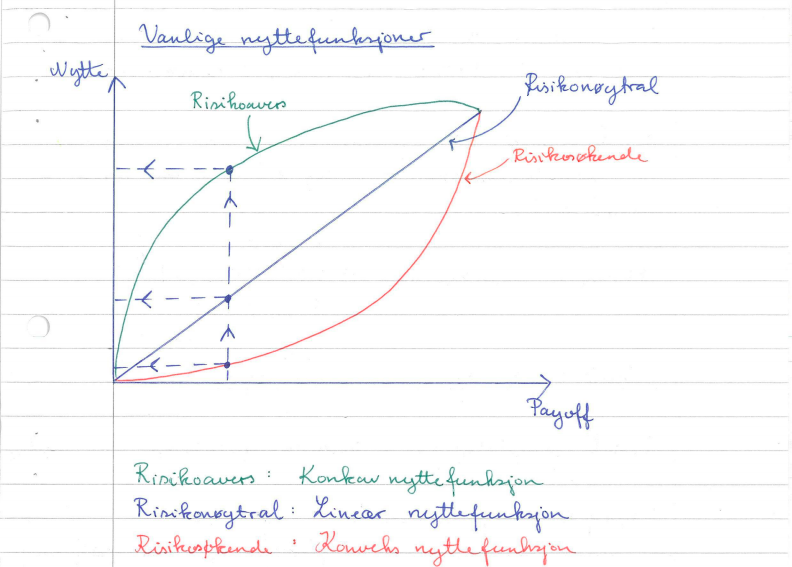 Vanlige nyttefunksjoner
Nytte
Risikoavers
Risikonøytral
Risikosøkende
Payoff
Risikoavers : Konkav nyttefunksjon
Risikonøytral : Lineær nyttefunksjon
Risikosøkende : Konveks nyttefunksjon